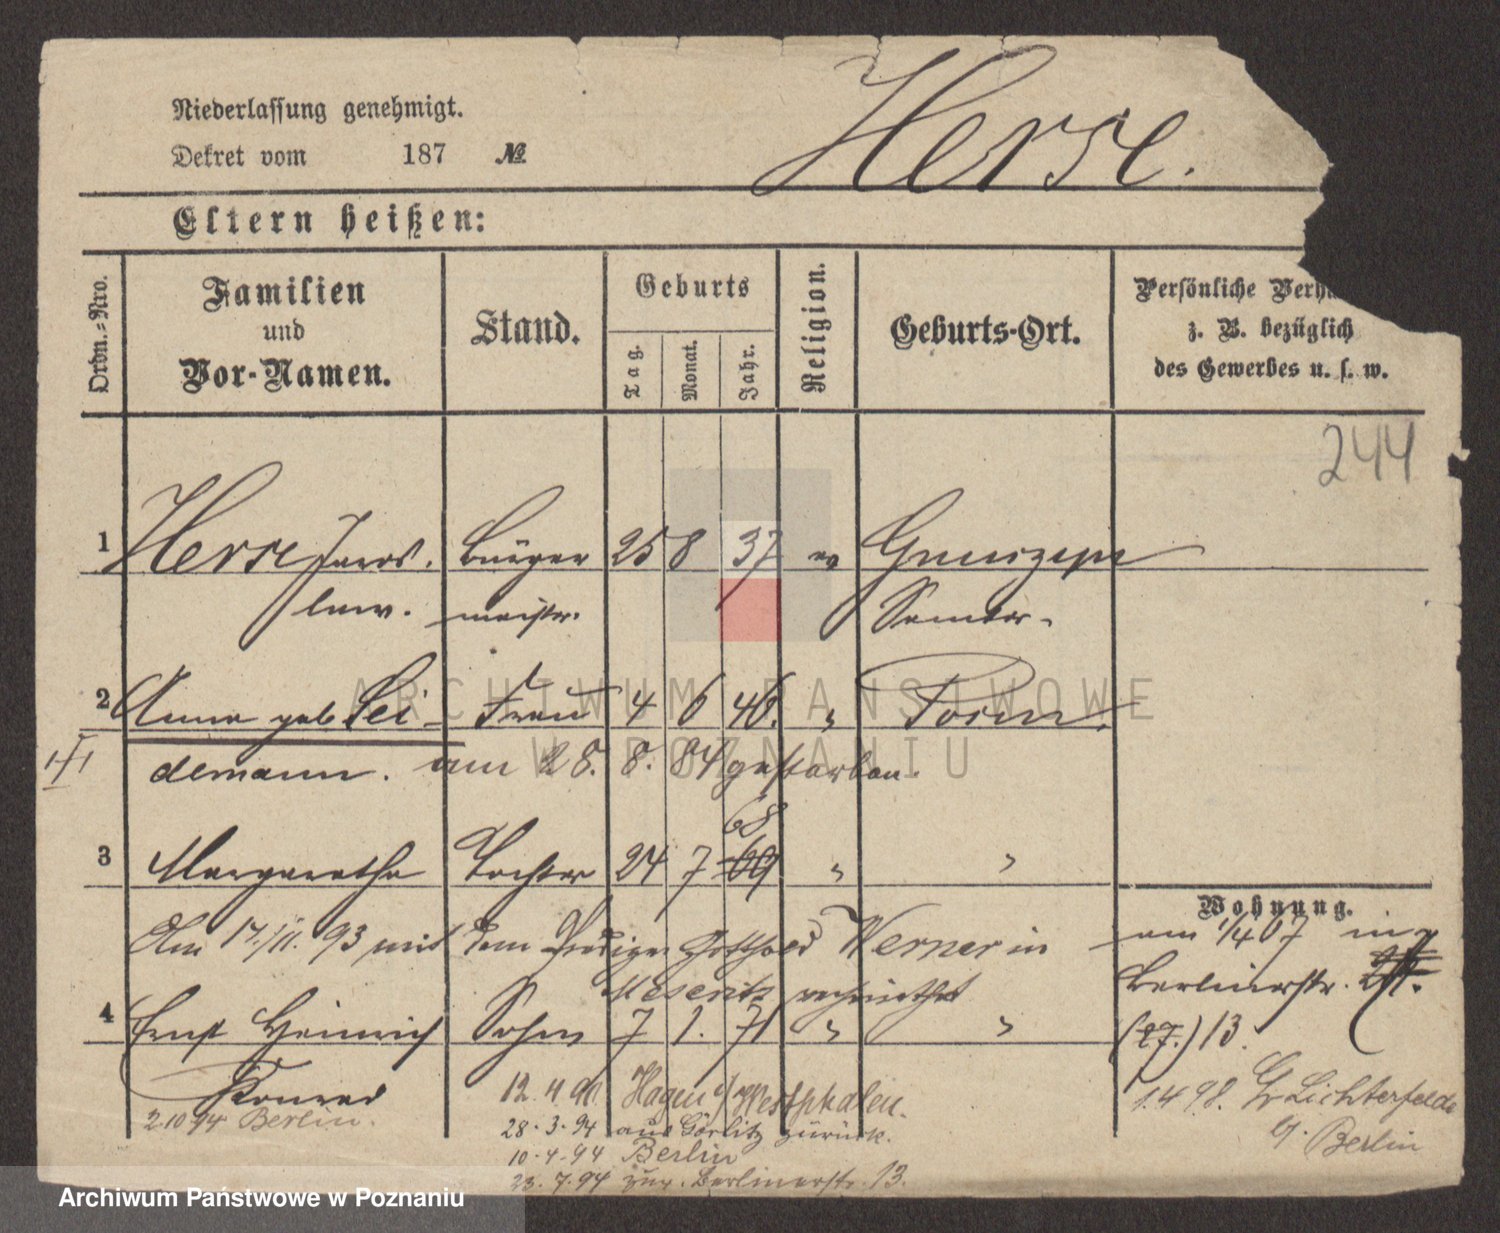 Niederlassung genehmigt.
Dekret vom 187 №
Herse.
Eltern heißen:
Ordn.-Nro.
Familien und Vor-Namen.
Stand.
Geburts
Tag.
Monat.
Jahr.
Religion.
Geburts-Ort.
Persönliche Verh
z. B. bezüglich
des Gewerbes u. s. w.
244
1 Herse Jaros- Bürger 25 8 37 ev
law. meister. Samter.
2 Anna geb. Sei- Frau 4 6 46. " Posen.
demann. am 28. 8. 84 gestorben.
68
3 Margarethe Tochter 24 7 69 " "
Wohnung.
Am 17./11. 93 mit dem Prediger Gotthold Werner in
Meseritz verheirathet
am 1/4 07 in
Berlinerstr.
4 Ernst Heinrich Sohn 7 1. 71 " "
(27.) 13.
Konrad
12. 4 90. Hagen i/Westphalen.
1.4 98. Gr Lichterfelde
2.10 94 Berlin.
28. 3. 94 aus Görlitz zurück.
b. Berlin
10. 4. 94 Berlin
23. 7. 94 zur. Berlinerstr. 13.
ARCHIWUM PAŃSTWOWE
W POZNANIU
Archiwum Państwowe w Poznaniu